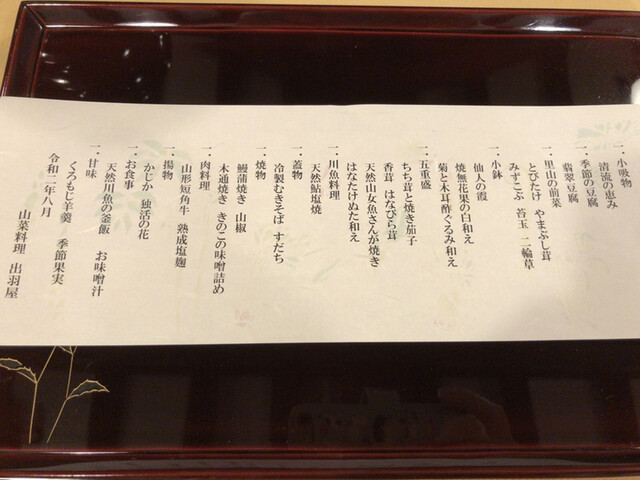 一．小吸物
清流の恵み
一．季節の豆腐
翡翠豆腐
一．里山の前菜
とびたけ　やまぶし茸
みずこぶ　苔玉　二輪草
一．小鉢
仙人の霞
焼無花果の白和え
菊と木耳酢ぐるみ和え
一．五重盛
ちち茸と焼き茄子
香茸　はなびら茸
天然山女魚さんが焼き
はなたけぬた和え
一．川魚料理
天然鮎塩焼
一．蓋物
冷製むきそば　すだち
一．焼物
鰻蒲焼き　山椒
木通焼き　きのこの味噌詰め
一．肉料理
山形短角牛　熟成塩麹
一．揚物
かじか　独活の花
一．お食事
天然川魚の釜飯　お味噌汁
一．甘味
くろもじ羊羹　季節果実
令和二年八月
山菜料理　出羽屋